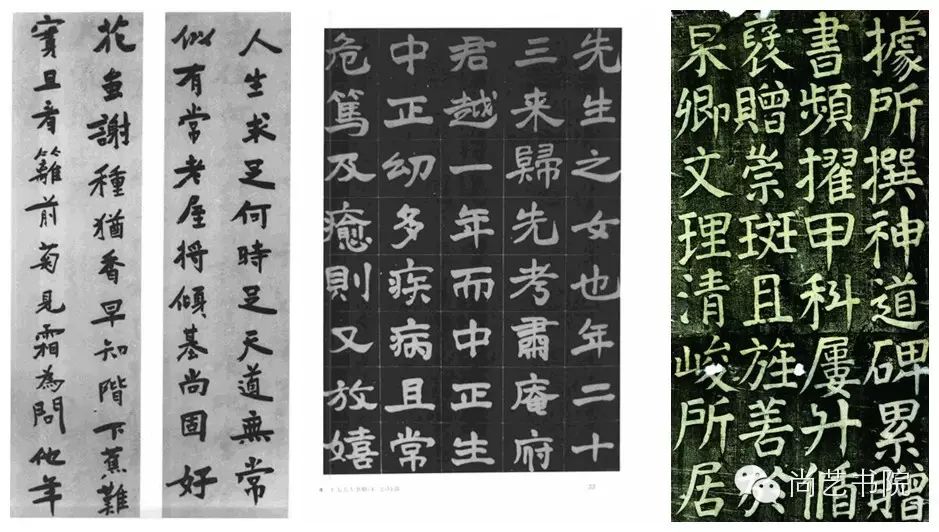 人生求足何時足天道無常
似有常老屋将傾基尚固好
花虽謝種猶香早知階下蕉難
實且看籬前菊見霜為問他年
先生之女也年二十
三来歸先考肅庵府
君越一年而中正生
中正幼多疾病且常
危篤及癒則又放嬉
33
據所撰神道碑累贈
書頻擢甲科屢升循
褒贈崇斑且旌善於
杲卿文理清峻所居
尚艺书院